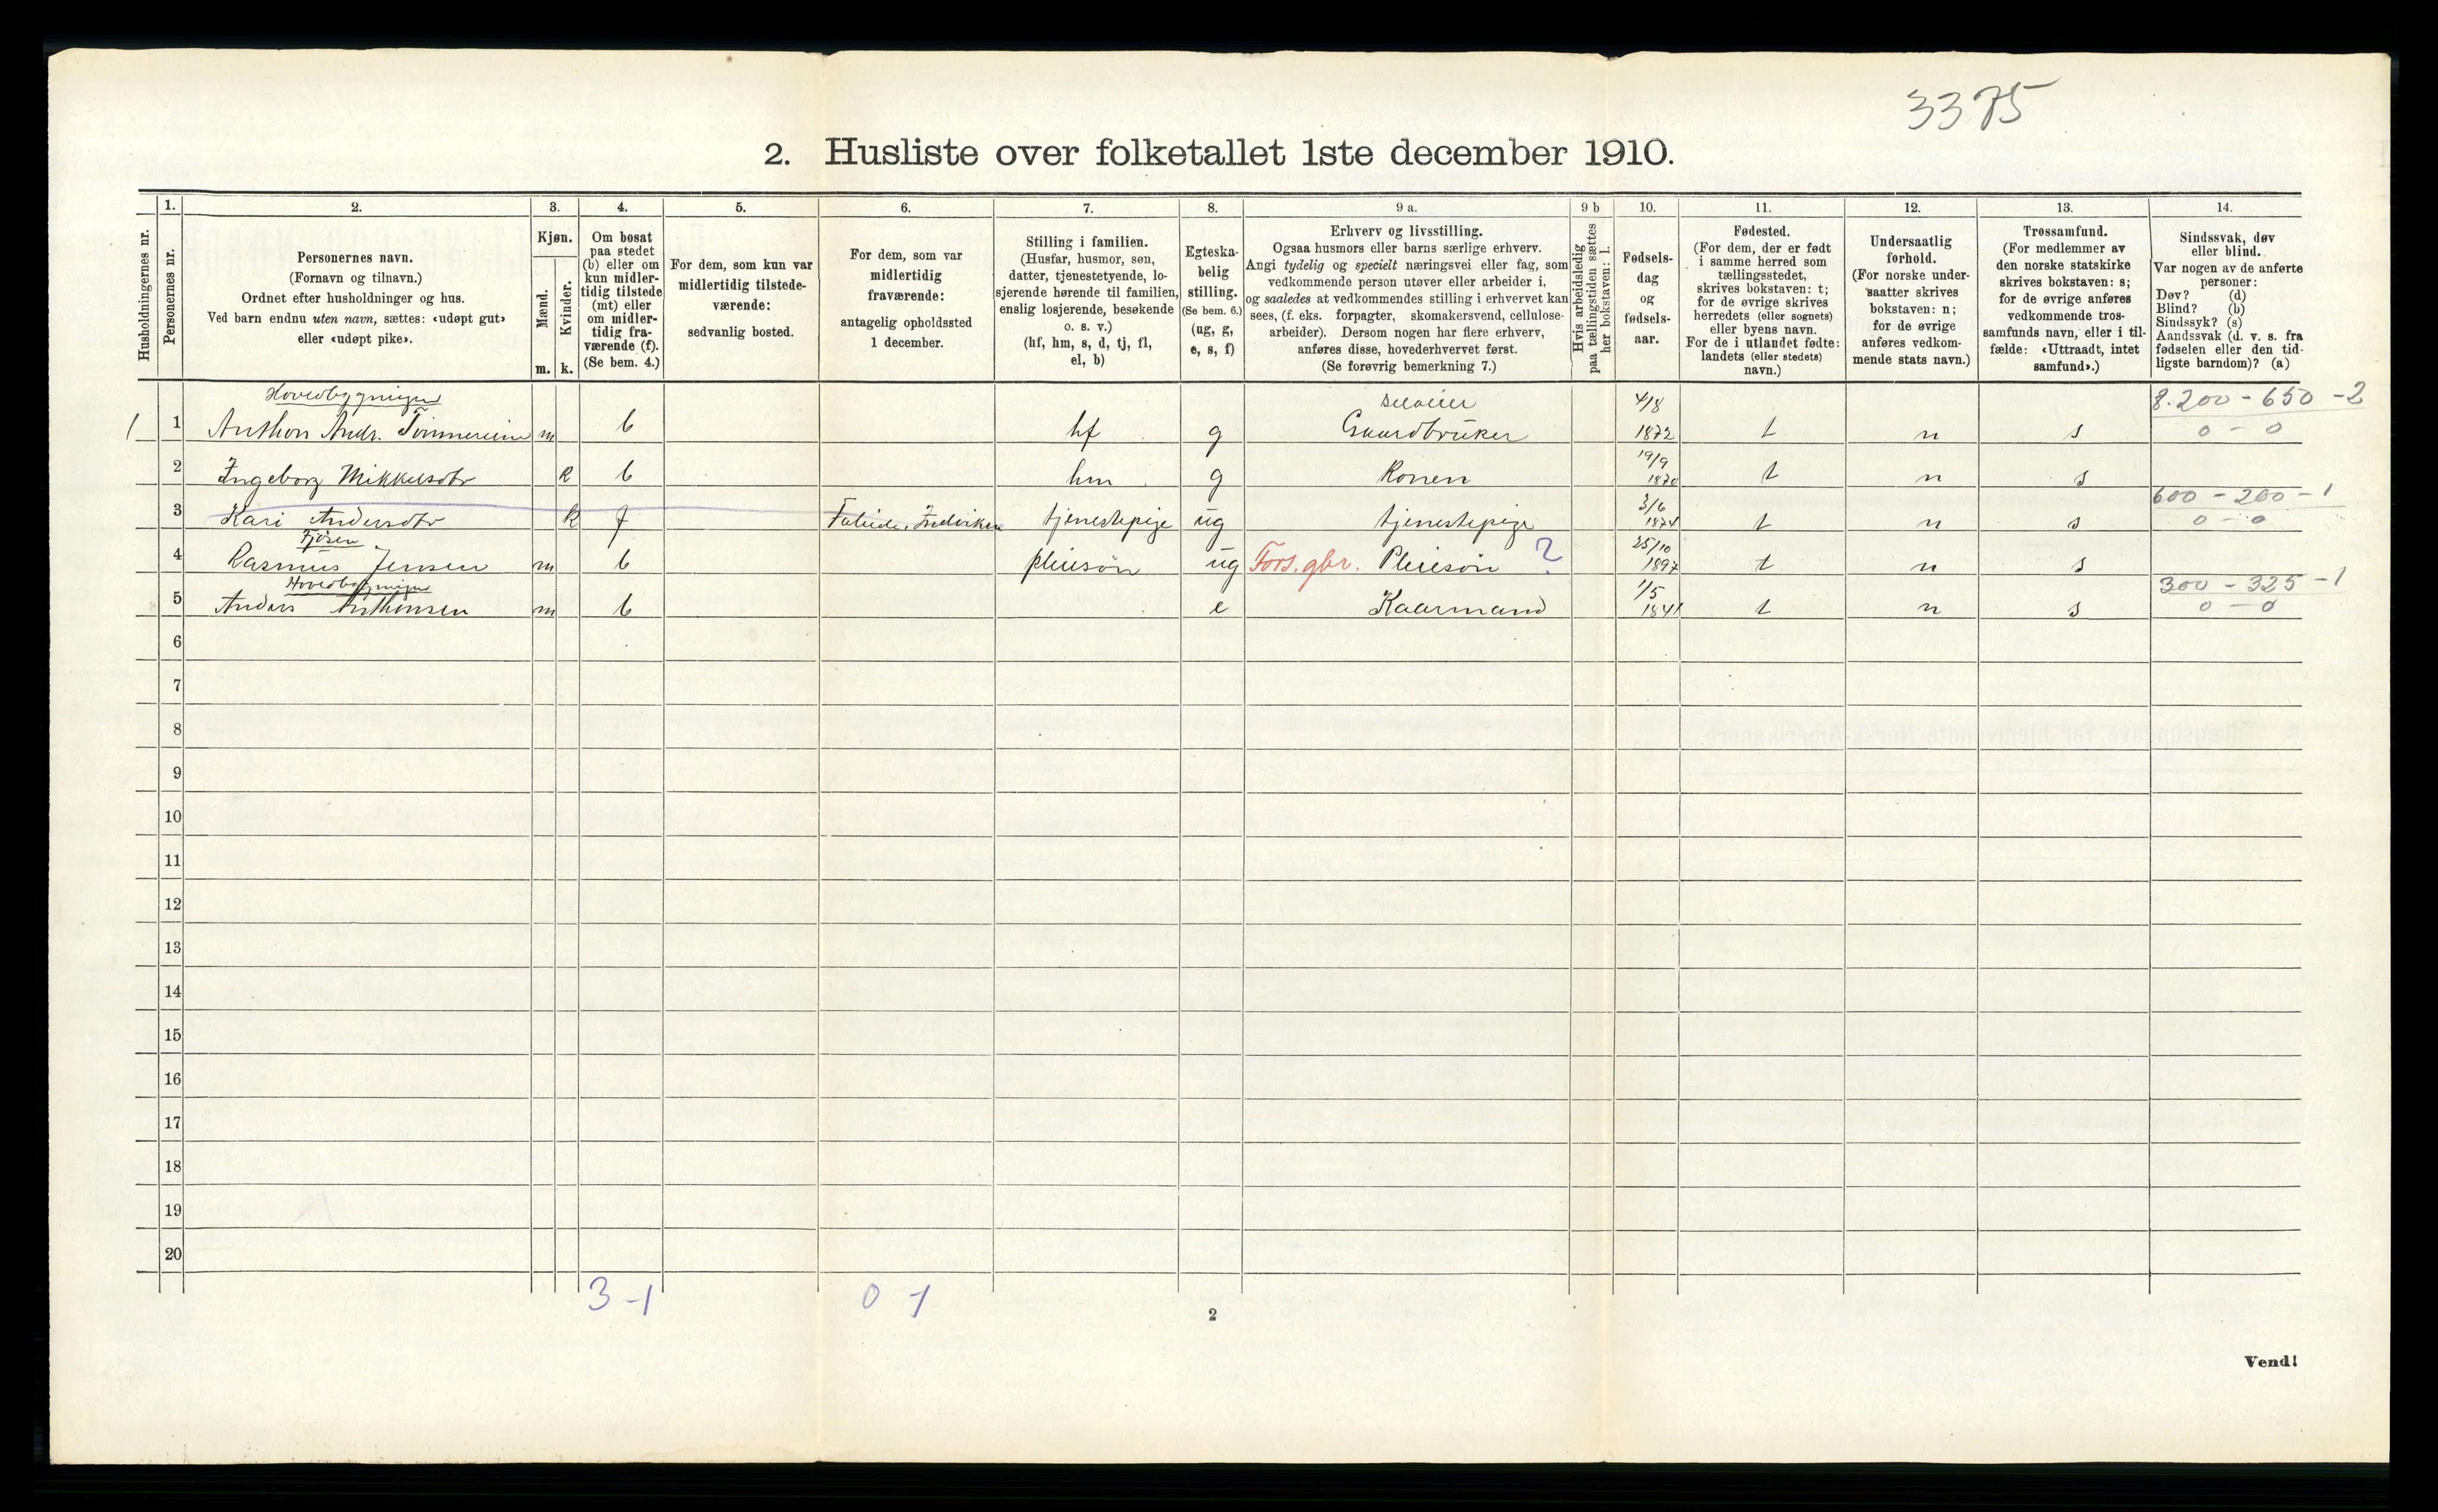 3375
2. Husliste over folketallet 1ste december 1910.
Husholdningernes nr.
1.
Personernes nr.
2.
Personernes navn.
(Fornavn og tilnavn.)
Ordnet efter husholdninger og hus.
Ved barn endnu uten navn, sættes: «udøpt gut»
eller «udøpt pike».
3.
Kjøn.
Mænd.
Kvinder.
m. k.
4.
Om bosat
paa stedet
(b) eller om
kun midler-
tidig tilstede
(mt) eller
om midler-
tidig fra-
værende (f).
(Se bem. 4.)
5.
For dem, som kun var
midlertidig tilstede-
værende:
sedvanlig bosted.
6.
For dem, som var
midlertidig
fraværende:
antagelig opholdssted
1 december.
7.
Stilling i familien.
(Husfar, husmor, søn,
datter, tjenestetyende, lo-
sjerende hørende til familien,
enslig losjerende, besøkende
o. s. v.)
(hf, hm, s, d, tj, fl,
el, b)
8.
Egteska-
belig
stilling.
(Se bem. 6.)
(ug, g,
e, s, f)
9 a.
Erhverv og livsstilling.
Ogsaa husmors eller barns særlige erhverv.
Angi tydelig og specielt næringsvei eller fag, som
vedkommende person utøver eller arbeider i,
og saaledes at vedkommendes stilling i erhvervet kan
sees, (f. eks. forpagter, skomakersvend, cellulose-
arbeider). Dersom nogen har flere erhverv,
anføres disse, hovederhvervet først.
(Se forøvrig bemerkning 7.)
9 b
Hvis arbeidsledig
paa tællingstiden sættes
her bokstaven: l.
10.
Fødsels-
dag
og
fødsels-
aar.
11.
Fødested.
(For dem, der er født
i samme herred som
tællingsstedet,
skrives bokstaven: t;
for de øvrige skrives
herredets (eller sognets)
eller byens navn.
For de i utlandet fødte:
landets (eller stedets)
navn.)
12.
Undersaatlig
forhold.
(For norske under-
saatter skrives
bokstaven: n;
for de øvrige
anføres vedkom-
mende stats navn.)
13.
Trossamfund.
(For medlemmer av
den norske statskirke
skrives bokstaven: s;
for de øvrige anføres
vedkommende tros-
samfunds navn, eller i til-
fælde: «Uttraadt, intet
samfund».)
14.
Sindssvak, døv
eller blind.
Var nogen av de anførte
personer:
Døv? (d)
Blind? (b)
Sindssyk? (s)
Aandssvak (d. v. s. fra
fødselen eller den tid-
ligste barndom)? (a)
Hovedbygningen selveier 4/8 8.200 - 650 - 2
1 1 Anthon Andr. Tømmereim m b hf g Gaardbruker 1872 t n s 0 - 0
19/9
2 Ingeborg Mikkelsdtr k b hm g Konen 1870 t n s
3/6 600 - 200 - 1
3 Kari Andersdtr k f tjenestepige ug tjenestepige 1874 t n s 0 - 0
Fjøsen 25/10
4 Rasmus Jensen m b pleiesøn ug Fors. gbr. Pleiesøn ? 1897 t n s
Hovedbygningen 1/5 300 - 325 - 1
5 Anders Anthonsen m b e Kaarmand 1841 t n s 0 - 0
6
7
8
9
10
11
12
13
14
15
16
17
18
19
20
3 - 1 0 1
2
Vend!